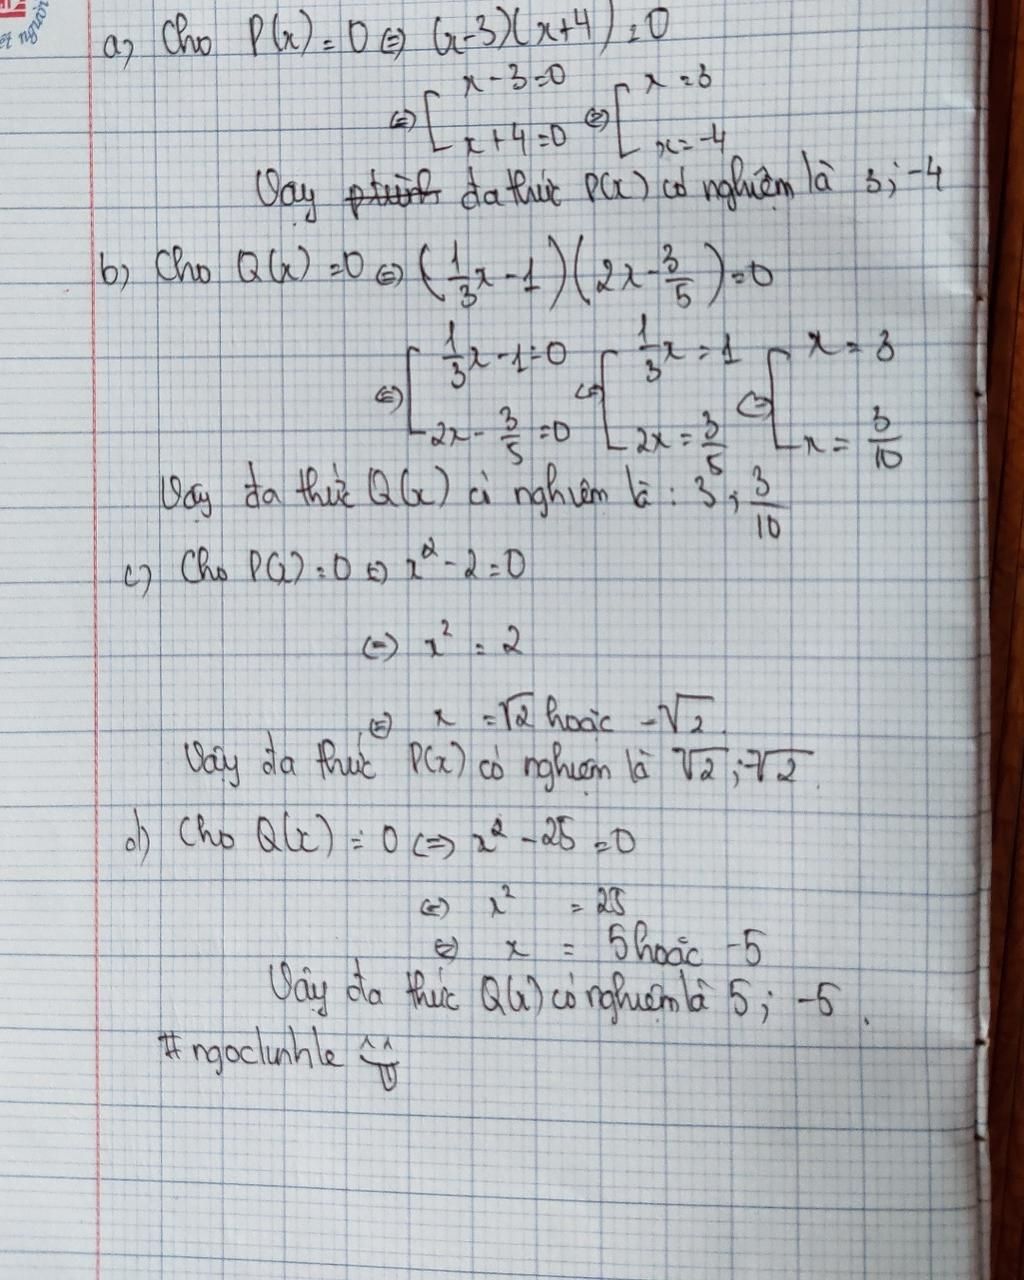 a) Cho P(x) = 0 ⇔ (x-3)(x+4) = 0
⇔ [ x - 3 = 0 ⇔ [ x = 3
x + 4 = 0 x = -4
Vậy đa thức P(x) có nghiệm là 3; -4
b) Cho Q(x) = 0 ⇔ (1/3x - 1)(2x - 3/5) = 0
⇔ [ 1/3x - 1 = 0 ⇔ [ 1/3x = 1 ⇔ [ x = 3
2x - 3/5 = 0 2x = 3/5 x = 3/10
Vậy đa thức Q(x) có nghiệm là : 3 ; 3/10
c) Cho P(x) = 0 ⇔ x² - 2 = 0
⇔ x² = 2
⇔ x = √2 hoặc -√2
Vậy đa thức P(x) có nghiệm là √2 ; -√2.
d) Cho Q(x) = 0 ⇔ x² - 25 = 0
⇔ x² = 25
⇔ x = 5 hoặc -5
Vậy đa thức Q(x) có nghiệm là 5 ; -5 .
#ngoclinhle